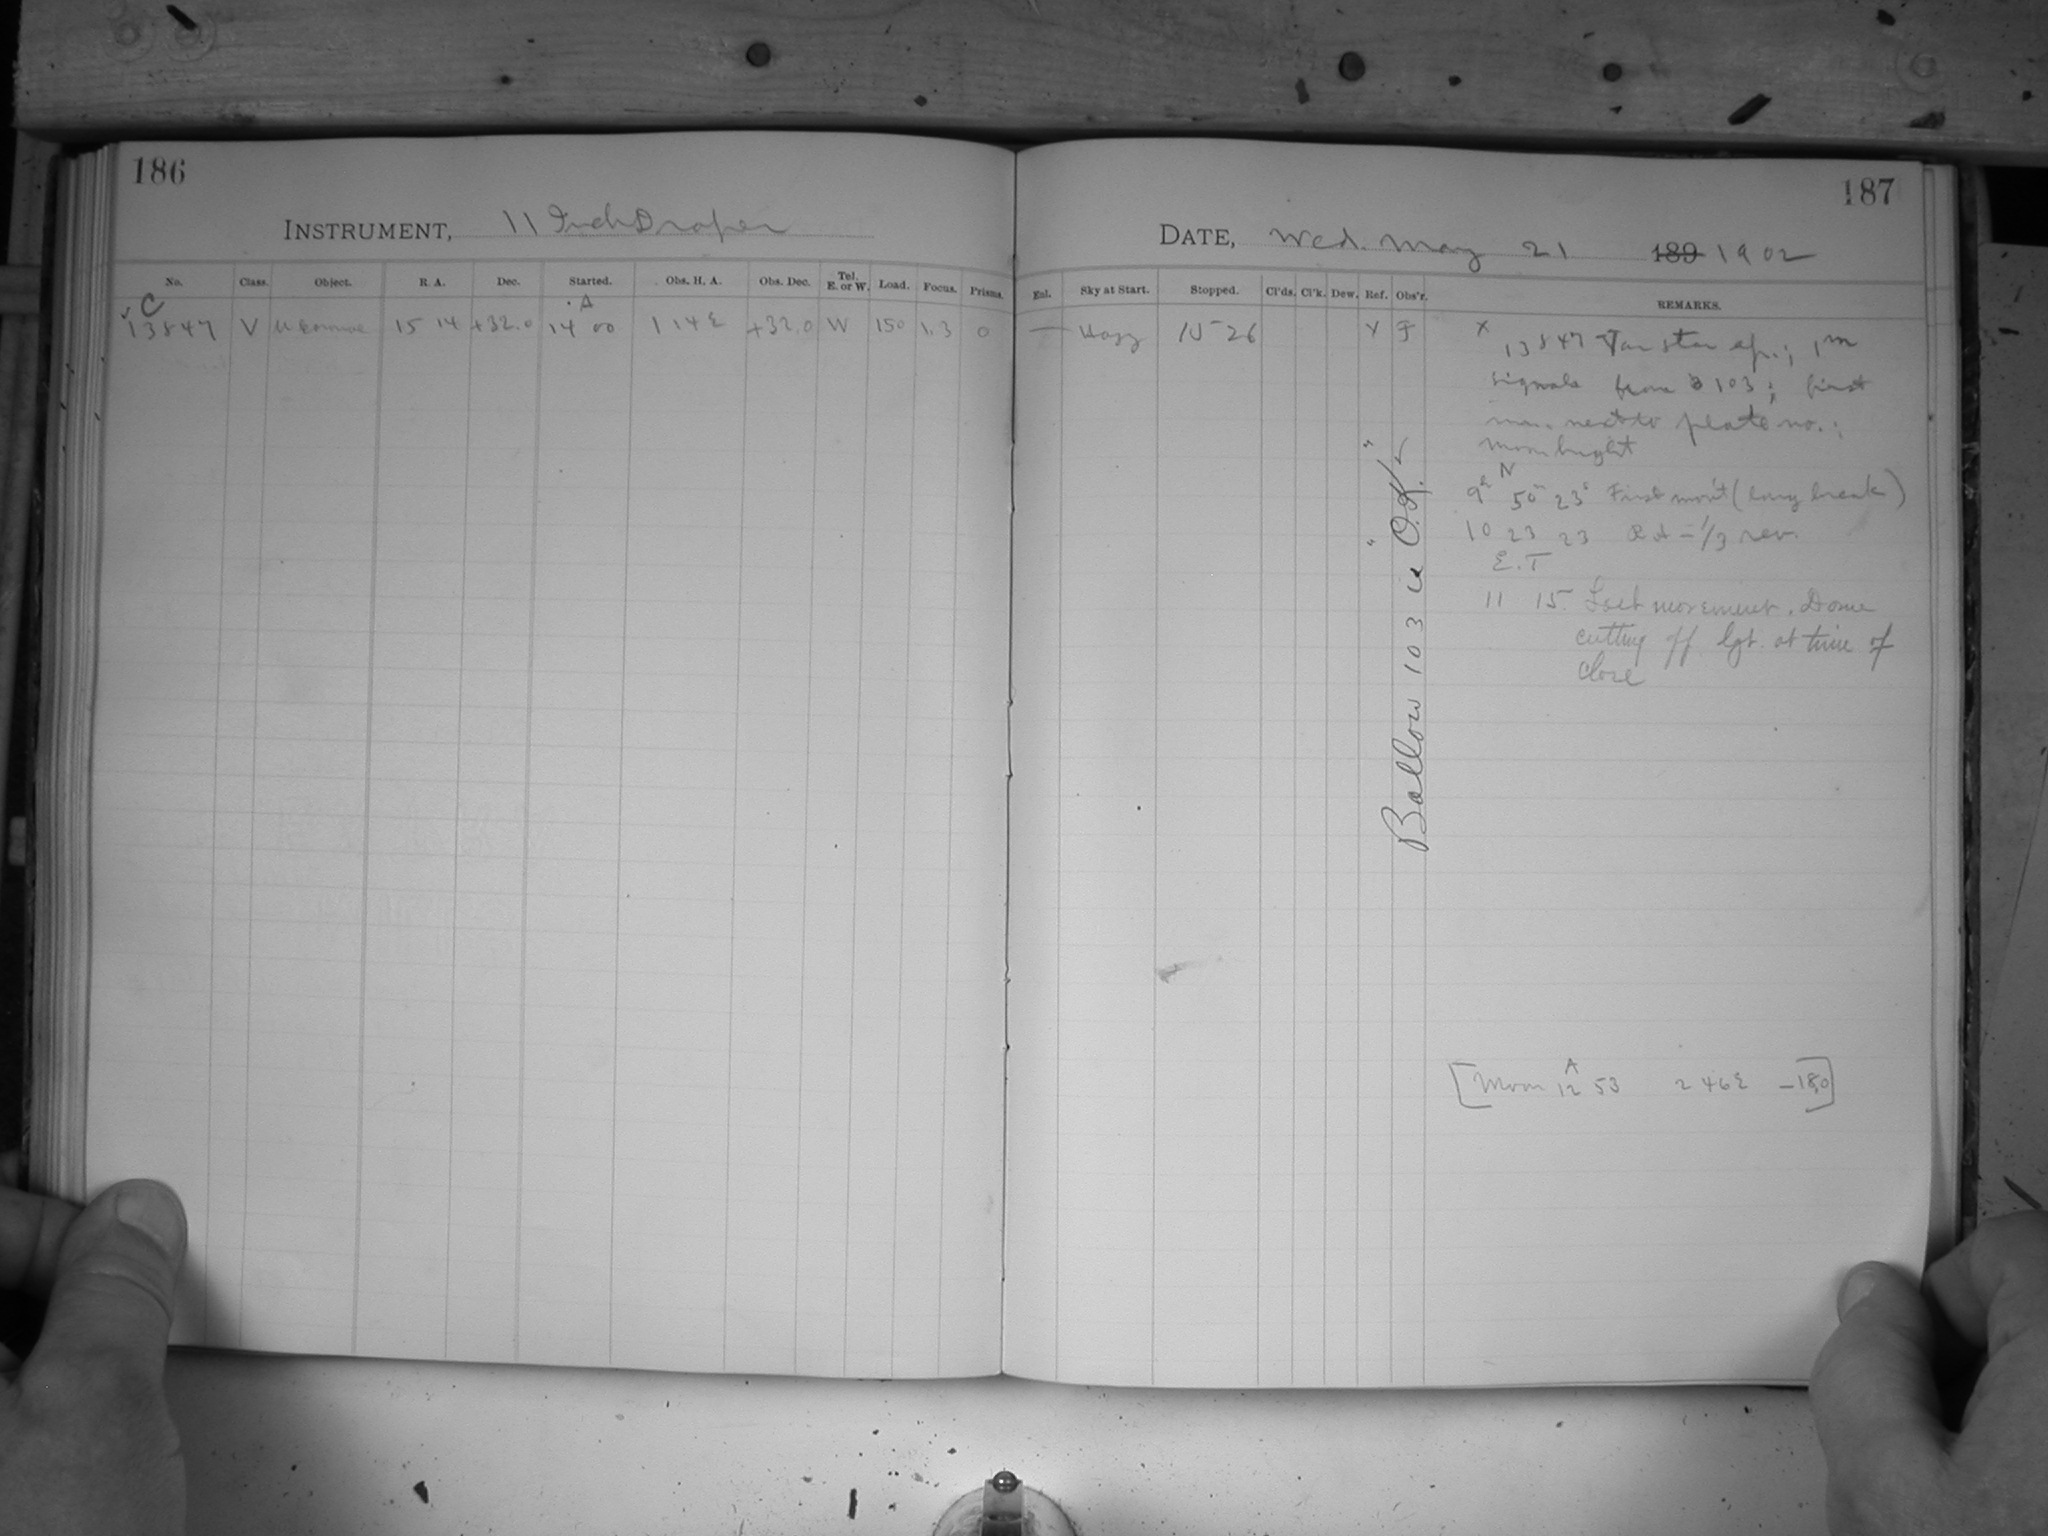 186
INSTRUMENT, 11 Inch Draper
No. Class. Object. R. A. Dec. Started. Obs. H. A. Obs. Dec. Tel. E. or W. Load. Focus. Prisms.
C A
13847 V U Coronae 15 14 +32.0 14 00 1 14 E +32.0 W 150 1.3 0
187
DATE, Wed. May 21 189 1902
Enl. Sky at Start. Stopped. Cl'ds. Cl'k. Dew. Ref. Obs'r. REMARKS.
— Hazy 15 26 X F
X 13847 Var star ; 1m
signals from 103 ; first
next to plate no. ;
moon bright
N
9h 50m 23s First mov't (long break)
10 23 23 R A - 1/3 rev.
E. T
11 15. Last movement. Dome
cutting off lgt. at time of
close
Ballow 103 is O.K.
A
[Moon 12 53 2 46 E -18.0]